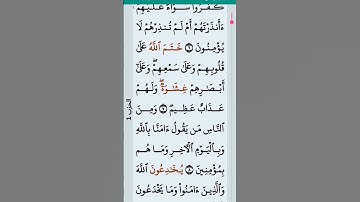 كَفَرُوا۟ سَوَآءٌ عَلَيْهِمْ
ءَأَنذَرْتَهُمْ أَمْ لَمْ تُنذِرْهُمْ لَا
يُؤْمِنُونَ ٦ خَتَمَ ٱللَّهُ عَلَىٰ
قُلُوبِهِمْ وَعَلَىٰ سَمْعِهِمْ ۖ وَعَلَىٰٓ
أَبْصَـٰرِهِمْ غِشَـٰوَةٌ ۖ وَلَهُمْ
عَذَابٌ عَظِيمٌ ٧ وَمِنَ
ٱلنَّاسِ مَن يَقُولُ ءَامَنَّا بِٱللَّهِ
وَبِٱلْيَوْمِ ٱلْـَٔاخِرِ وَمَا هُم
بِمُؤْمِنِينَ ٨ يُخَـٰدِعُونَ ٱللَّهَ
وَٱلَّذِينَ ءَامَنُوا۟ وَمَا يَخْدَعُونَ
الحزب 1